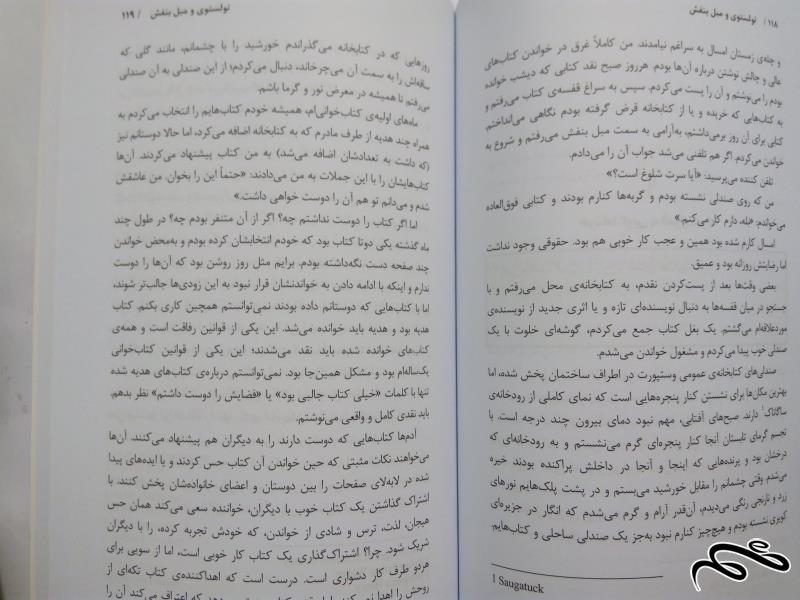 ۱۱۸ / تولستوی و مبل بنفش
و چله‌ی زمستان امسال به سراغم نیامدند. من کاملاً غرق در خواندن کتاب‌های
عالی و چالش نوشتن درباره‌ی آن‌ها بودم. هرروز صبح نقد کتابی که دیشب خوانده
بودم را می‌نوشتم و آن را پست می‌کردم. سپس به سراغ قفسه‌ی کتاب می‌رفتم و
به کتاب‌هایی که خریده و یا از کتابخانه قرض گرفته بودم نگاهی می‌انداختم.
کتابی برای آن روز برمی‌داشتم، به‌آرامی به سمت مبل بنفش می‌رفتم و شروع به
خواندن می‌کردم. اگر هم تلفنی می‌شد جواب آن را می‌دادم.
تلفن کننده می‌پرسید: «آیا سرت شلوغ است؟»
من که روی صندلی نشسته بودم و گربه‌ها کنارم بودند و کتابی فوق‌العاده
می‌خواندم: «بله، دارم کار می‌کنم.»
امسال کارم شده بود همین و عجب کار خوبی هم بود. حقوقی وجود نداشت
اما رضایتش روزانه بود و عمیق.
بعضی وقت‌ها بعد از پست‌کردن نقدم، به کتابخانه‌ی محل می‌رفتم و با
جستجو در میان قفسه‌ها به دنبال نویسنده‌ای تازه و یا اثری جدید از نویسنده‌ی
موردعلاقه‌ام می‌گشتم. یک بغل کتاب جمع می‌کردم، گوشه‌ای خلوت با یک
صندلی خوب پیدا می‌کردم و مشغول خواندن می‌شدم.
صندلی‌های کتابخانه‌ی عمومی وستپورت در اطراف ساختمان پخش شده، اما
بهترین مکان‌ها برای نشستن کنار پنجره‌هایی است که نمای کاملی از رودخانه‌ی
ساگاتاک¹ دارند. صبح‌های آفتابی، مهم نبود دمای بیرون چند درجه است. با
تجسم گرمای تابستان آنجا کنار پنجره‌ای گرم می‌نشستم و به رودخانه‌ای که
درخشان بود و پرنده‌هایی که اینجا و آنجا در داخلش پراکنده بودند خیره
می‌شدم. وقتی چشمانم را مقابل خورشید می‌بستم و در پشت پلک‌هایم نورهای
زرد و نارنجی رنگی می‌دیدم، آن‌قدر آرام و گرم می‌شدم که انگار در جزیره‌ای
کویری نشسته بودم و هیچ‌چیز کنارم نبود به‌جز یک صندلی ساحلی و کتاب‌هایم.
1 Saugatuck
تولستوی و مبل بنفش / ۱۱۹
روزهایی که در کتابخانه می‌گذراندم خورشید را با چشمانم، مانند گلی که
ساقه‌اش را به سمت آن می‌چرخاند، دنبال می‌کردم؛ از این صندلی به آن صندلی
می‌رفتم تا همیشه در معرض نور و گرما باشم.
ماه‌های اولیه‌ی کتاب‌خوانی‌ام، همیشه خودم کتاب‌هایم را انتخاب می‌کردم به
همراه چند هدیه از طرف مادرم که به کتابخانه اضافه می‌کرد، اما حالا دوستانم نیز
(که داشت به تعدادشان اضافه می‌شد) به من کتاب پیشنهاد می‌کردند. آن‌ها
کتاب‌هایشان را با این جملات به من می‌دادند: «حتماً این را بخوان. من عاشقش
شدم و می‌دانم تو هم آن را دوست خواهی داشت.»
اما اگر کتاب را دوست نداشتم چه؟ اگر از آن متنفر بودم چه؟ در طول چند
ماه گذشته یکی دوتا کتاب بود که خودم انتخابشان کرده بودم و به‌محض خواندن
چند صفحه دست نگه‌داشته بودم. برایم مثل روز روشن بود که آن‌ها را دوست
ندارم و اینکه با ادامه دادن به خواندنشان قرار نبود به این زودی‌ها جالب‌تر شوند،
اما با کتاب‌هایی که دوستانم داده بودند نمی‌توانستم همچین کاری بکنم. کتاب
هدیه بود و هدیه باید خوانده می‌شد. این یکی از قوانین رفاقت است و همه‌ی
کتاب‌های خوانده شده باید نقد می‌شدند؛ این یکی از قوانین کتاب‌خوانی
یک‌ساله‌ام بود و مشکل همین‌جا بود. نمی‌توانستم درباره‌ی کتاب‌های هدیه شده
تنها با کلمات «خیلی کتاب جالبی بود» یا «فضایش را دوست داشتم» نظر بدهم.
باید نقدی کامل و واقعی می‌نوشتم.
آدم‌ها کتاب‌هایی که دوست دارند را به دیگران هم پیشنهاد می‌کنند. آن‌ها
می‌خواهند نکات مثبتی که حین خواندن آن کتاب حس کردند و یا ایده‌های پیدا
شده در لابه‌لای صفحات را بین دوستان و اعضای خانواده‌شان پخش کنند. با
اشتراک گذاشتن یک کتاب خوب با دیگران، خواننده سعی می‌کند همان حس
هیجان، لذت، ترس و شادی از خواندن، که خودش تجربه کرده، را با دیگران
شریک شود. چرا؟ اشتراک‌گذاری یک کتاب کار خوبی است، اما از سویی برای
هردو طرف کار دشواری است. درست است که اهداکننده‌ی کتاب تکه‌ای از
روحش را اهدا نمی‌کند، اما
که اعتراف می‌کند آن را